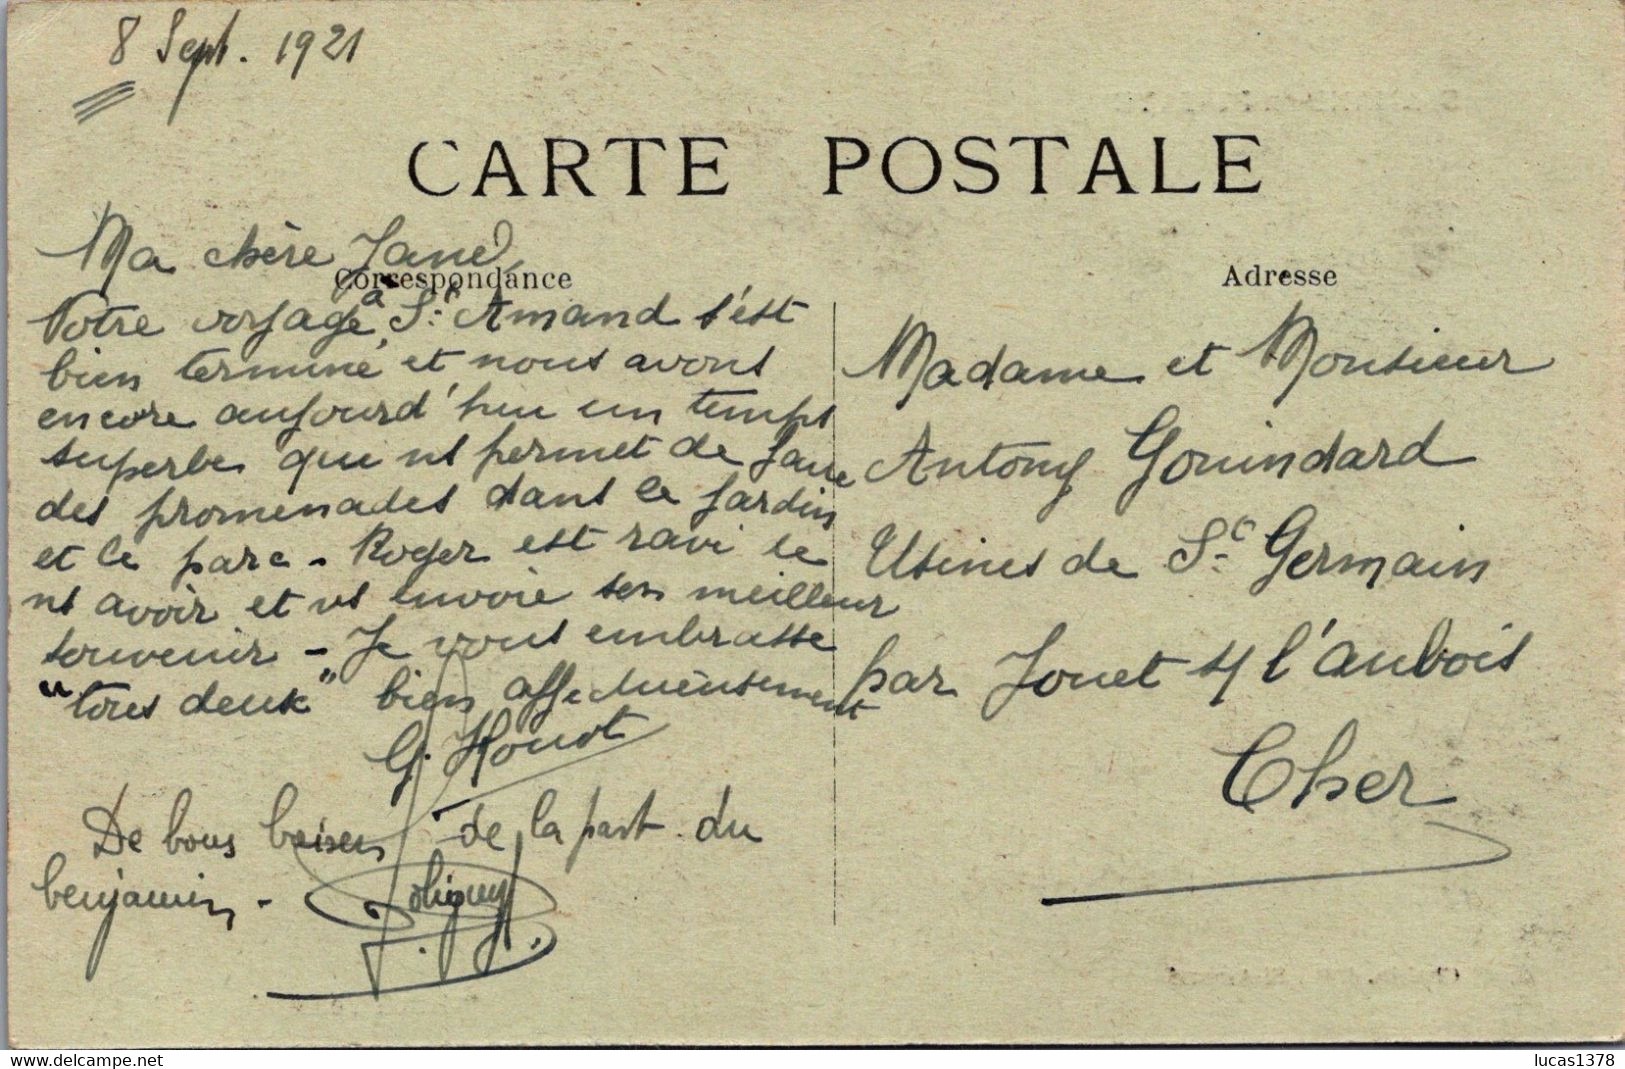 8 Sept. 1921
CARTE POSTALE
Correspondance
Ma chère Jane,
Votre voyage à St Amand s'est
bien terminé et nous avons
encore aujourd'hui un temps
superbe qui ns permet de faire
des promenades dans le jardin
et le parc - Roger est ravi de
ns avoir et vs envoie son meilleur
souvenir - Je vous embrasse
"tous deux" bien affectueusement
G. Houot
De bons baisers de la part du
benjamin -
Adresse
Madame et Monsieur
Antony Gouindard
Usines de St Germain
par Jouet s/ l'aubois
Cher
lucas1378